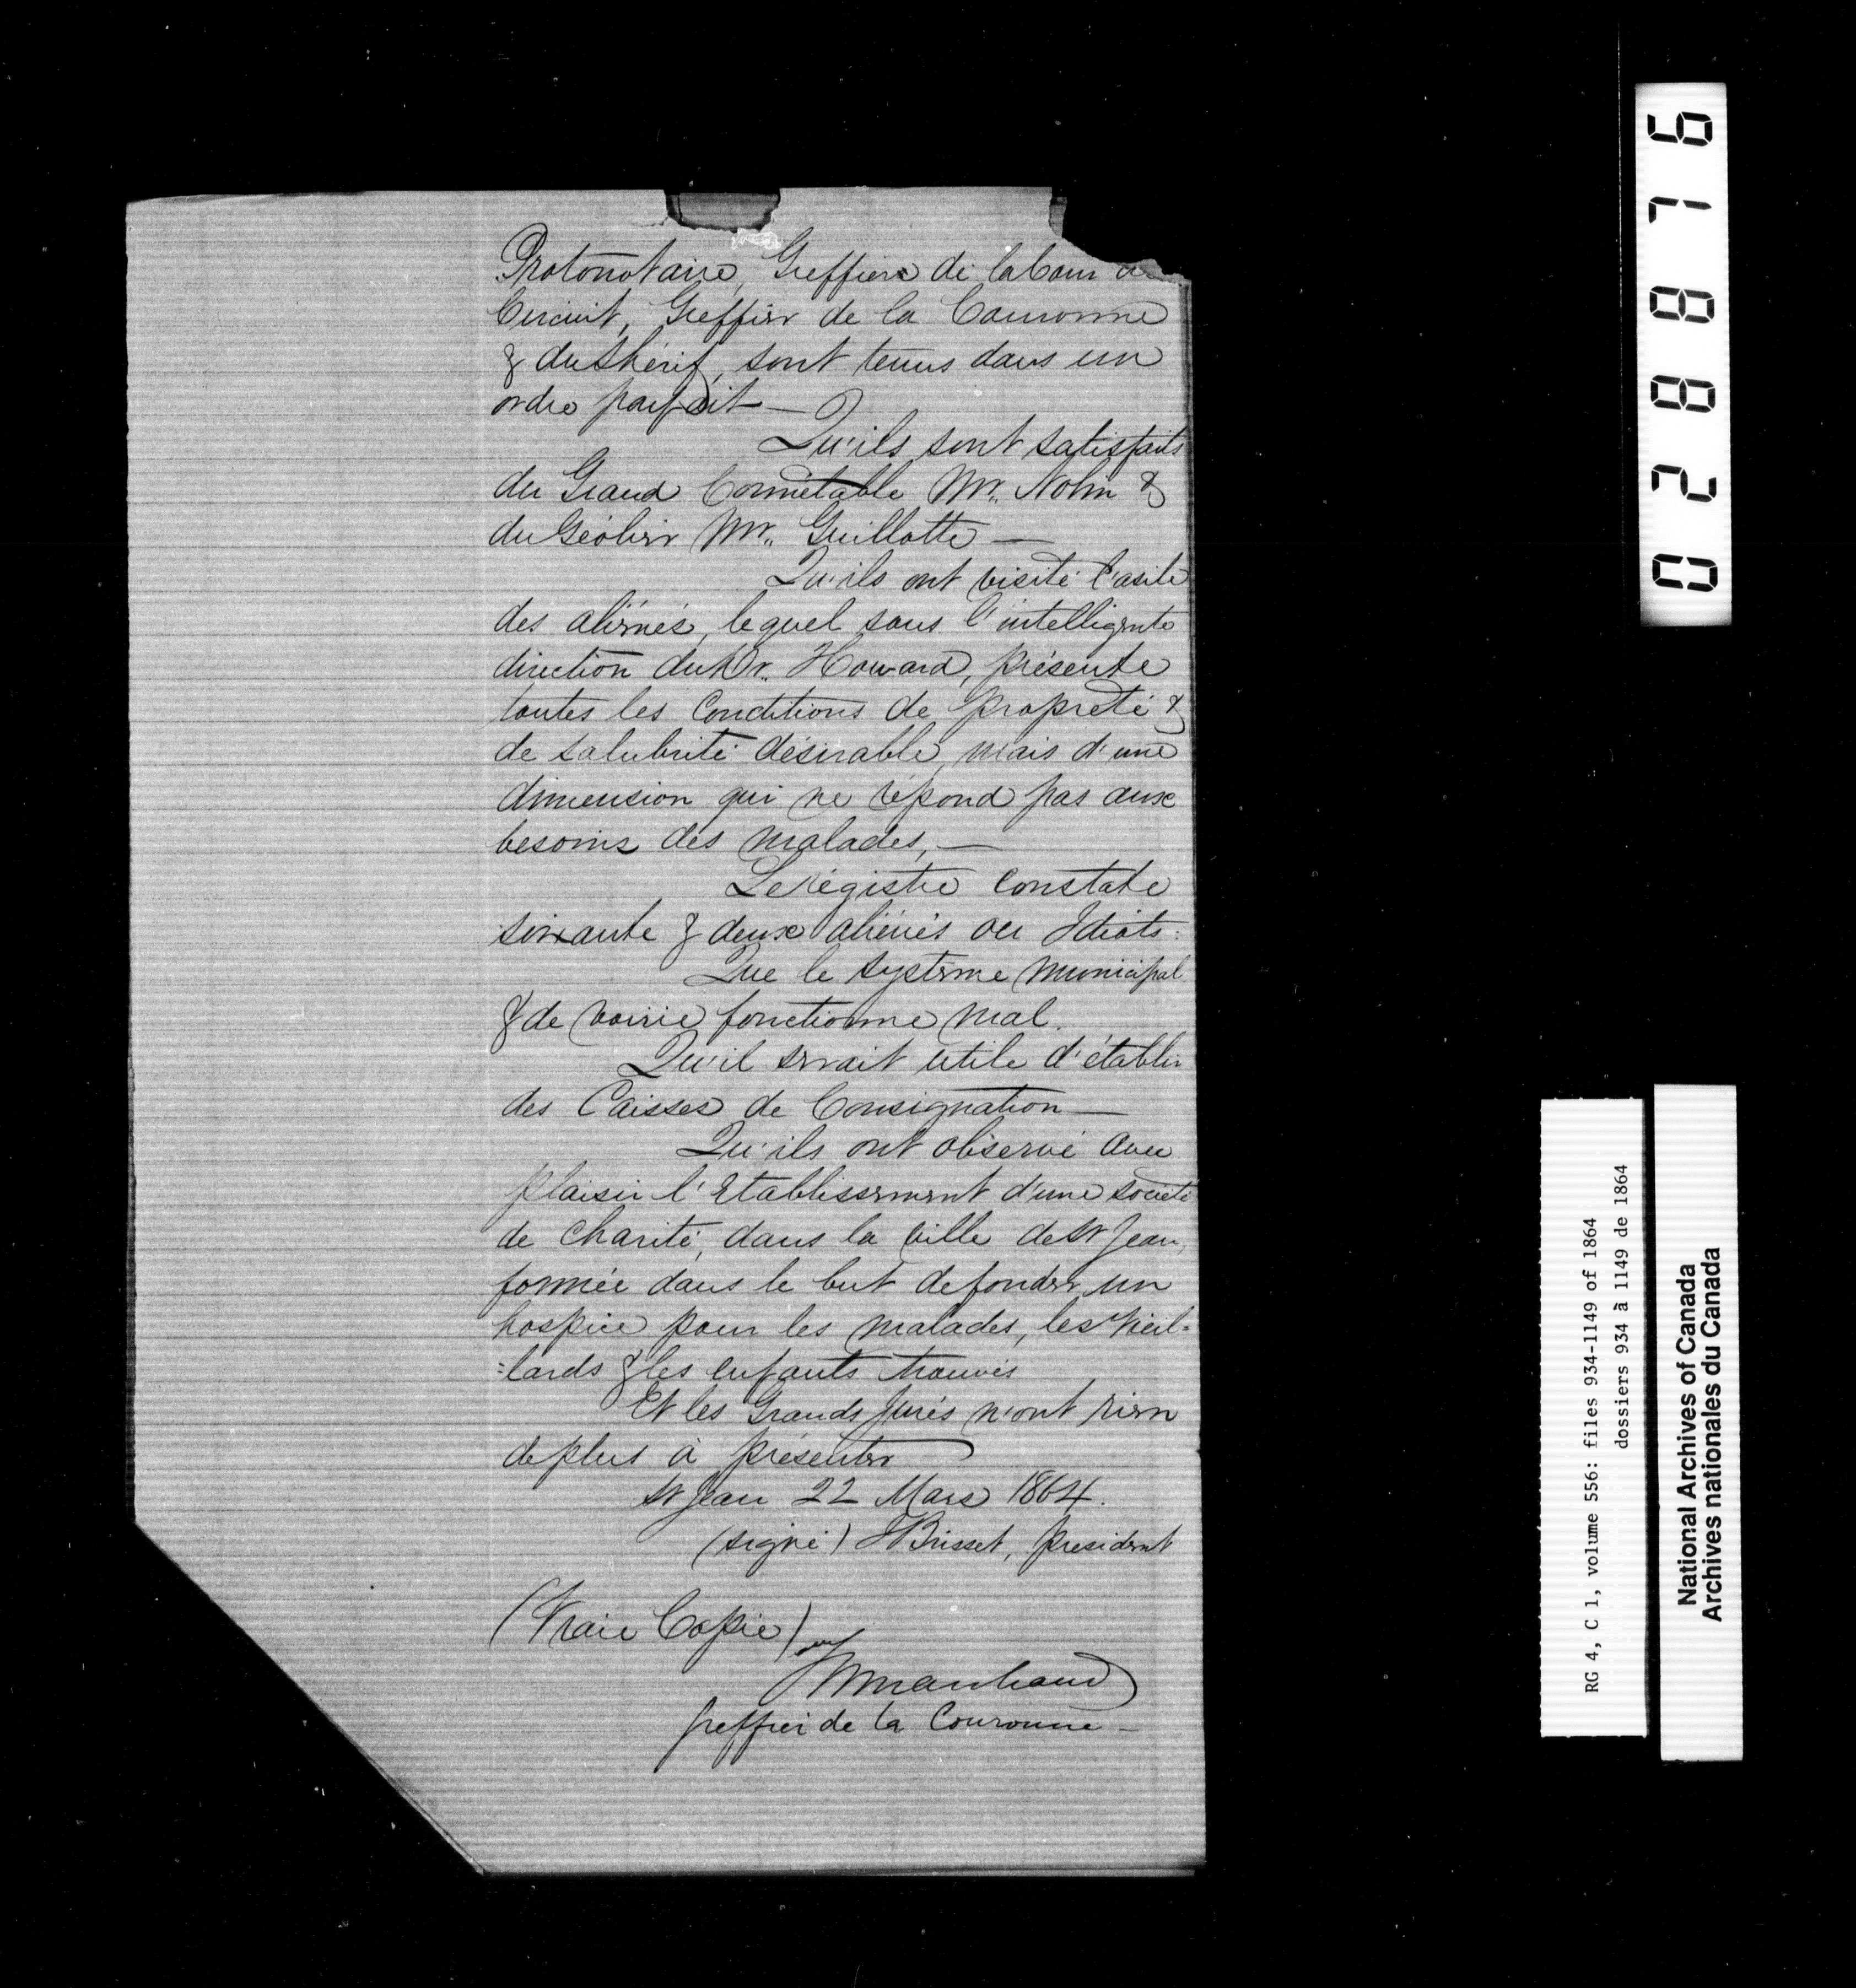 Protonotaire, Greffier de la Cour
Circuit, Greffier de la Couronne
& du Shérif, sont tenus dans un
ordre parfait —
Qu'ils sont satisfaits
du Grand Connétable Mr. Nolin &
du Géolier Mr. Guillotte —
Qu'ils ont visité l'asile
des aliénés, lequel sous l'intelligente
direction du Dr. Howard, présente
toutes les Conditions de propreté &
de salubrité désirable, mais d'une
dimension qui ne répond pas aux
besoins des malades, —
Le régistre constate
soixante & deux aliénés ou Idiots:
Que le système municipal
& de voirie fonctionne mal.
Qu'il serait utile d'établir
des Caisses de Consignation —
Qu'ils ont observé avec
plaisir l'Etablissement d'une société
de charité, dans la ville de St Jean,
formée dans le but de fonder un
hospice pour les malades, les vieil=
=lards & les enfants trouvés
Et les Grands Jurés n'ont rien
de plus à présenter
St Jean 22 Mars 1864.
(signé) Brisset, président
(Vraie Copie)
Marchand
Greffier de la Couronne —
028876
RG 4, C 1, volume 556: files 934-1149 of 1864
dossiers 934 à 1149 de 1864
National Archives of Canada
Archives nationales du Canada